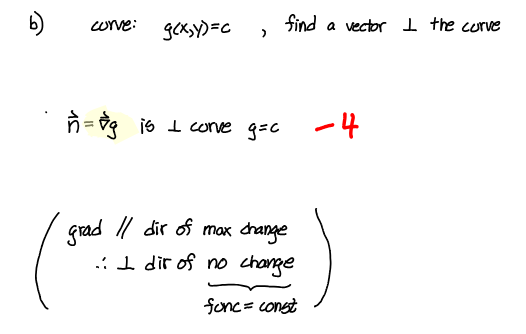 b) curve: g(x,y)=c , find a vector ⊥ the curve
n⃗ = ∇⃗g is ⊥ curve g=c -4
grad // dir of max change
∴ ⊥ dir of no change
func = const